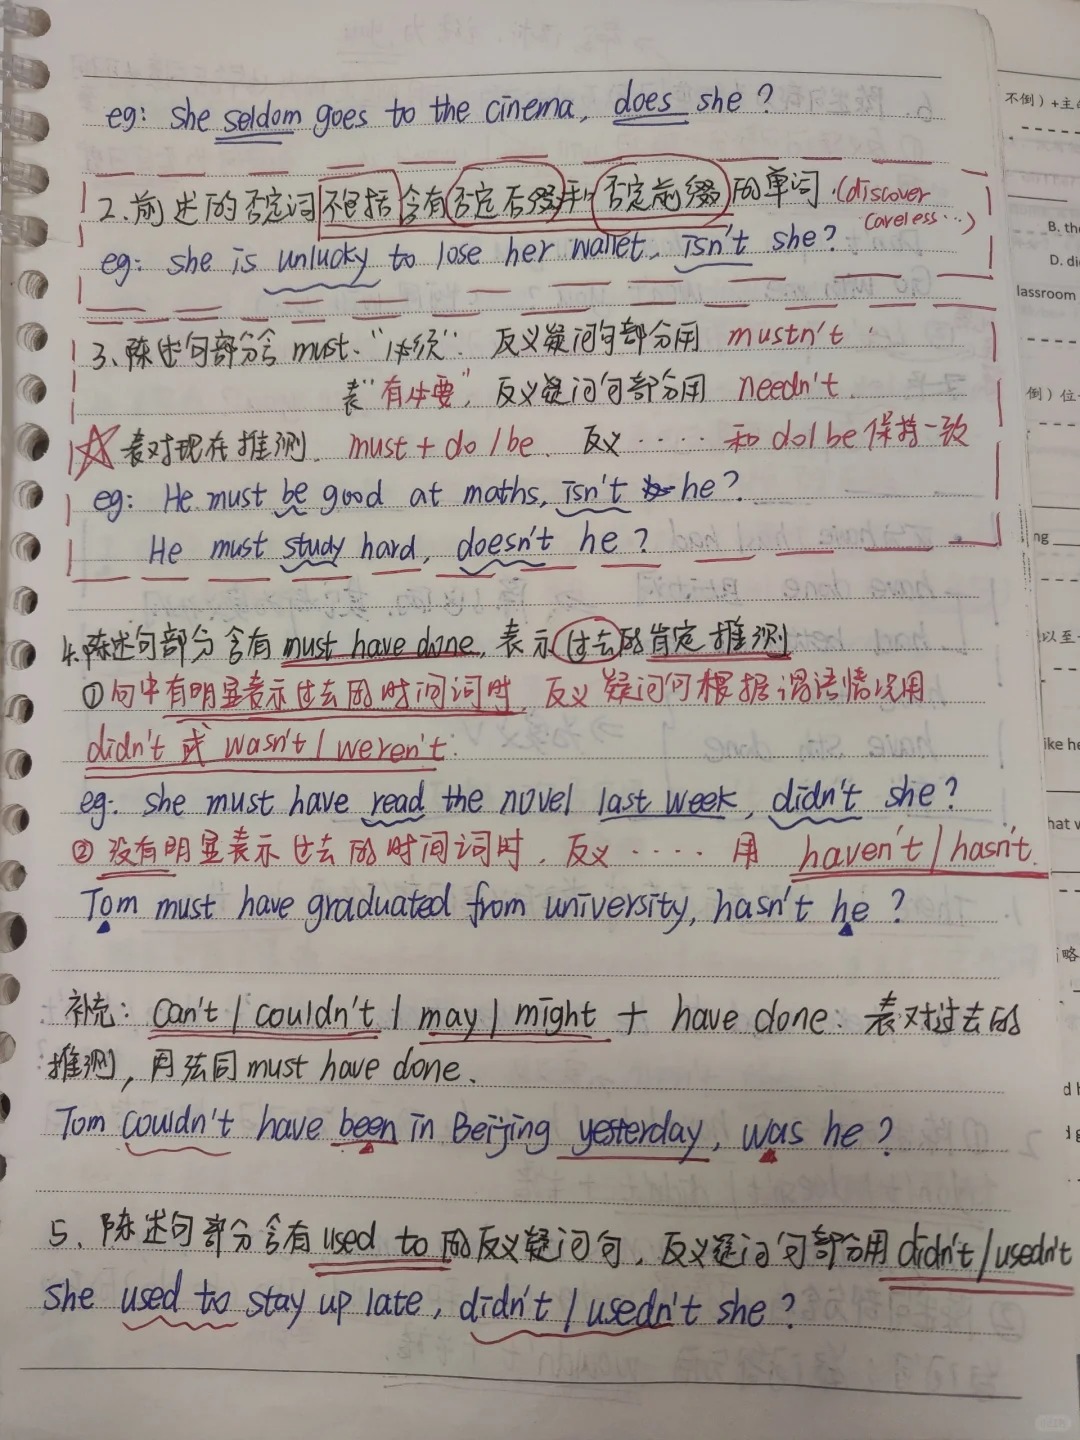 eg: she seldom goes to the cinema, does she?
2.前述的否定词不包括含有否定后缀和否定前缀的单词.(discover
careless…)
eg: she is unlucky to lose her wallet, isn't she?
3、陈述句部分含 must、"必须". 反义疑问句部分用 mustn't
表"有必要", 反义疑问句部分用 needn't.
☆表对现在推测. must + do / be. 反义 ‥‥ 和 do / be 保持一致
eg: He must be good at maths, isn't he?
He must study hard, doesn't he?
4.陈述句部分含有 must have done, 表示过去的肯定推测
①句中有明显表示过去的时间词时, 反义疑问句根据谓语情况用
didn't 或 wasn't / weren't.
eg: she must have read the novel last week, didn't she?
②没有明显表示过去的时间词时, 反义 ‥‥ 用 haven't / hasn't.
Tom must have graduated from university, hasn't he?
补充: can't / couldn't / may / might + have done: 表对过去的
推测, 用法同 must have done.
Tom couldn't have been in Beijing yesterday, was he?
5、陈述句部分含有 used to 的反义疑问句, 反义疑问句部分用 didn't / usedn't
She used to stay up late, didn't / usedn't she?
不倒）+主
B. the
D. di
lassroom
倒）位
ng
以至
ike he
hat v
略